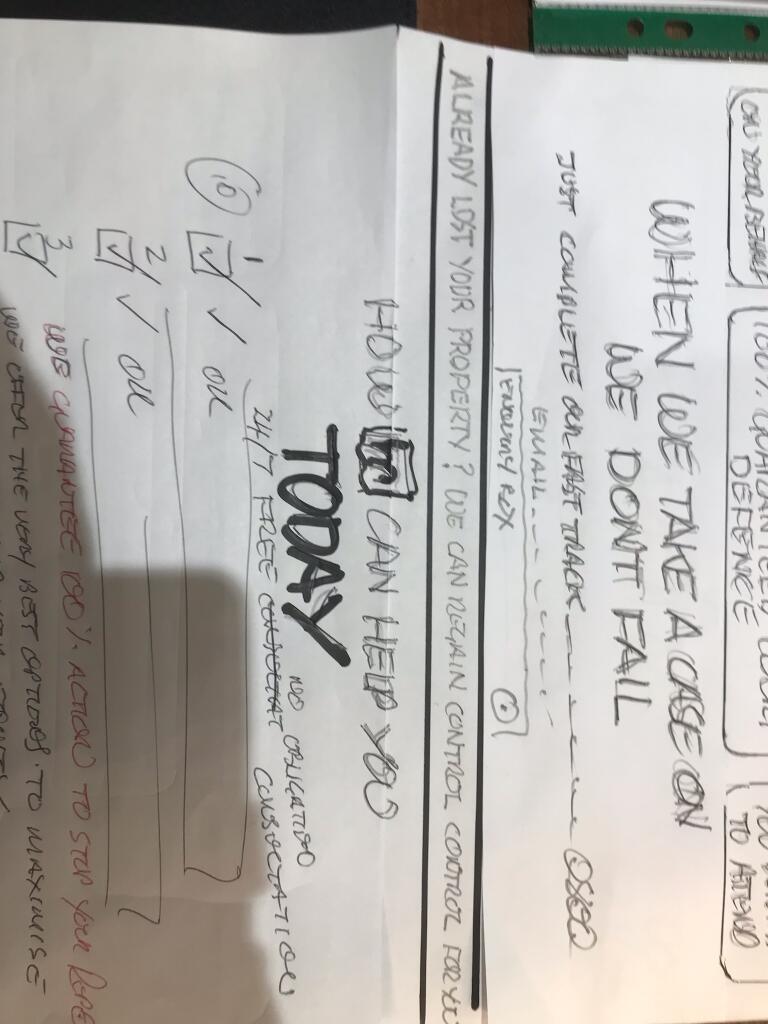 ON YOUR BEHALF
100% GUARANTEED COURT
DEFENCE
TO ATTEND
WHEN WE TAKE A CASE ON
WE DON'T FAIL
JUST COMPLETE OUR FAST TRACK
EMAIL
ENQUIRY BOX
ALREADY LOST YOUR PROPERTY? WE CAN REGAIN CONTROL CONTROL FOR YOU
HOW CAN HELP YOU
TODAY
24/7 FREE NO OBLIGATION
CONSULTATION
10
1
OK
2
OK
3
WE GUARANTEE 100% ACTION TO STOP YOUR REPE
WE OFFER THE VERY BEST OPTIONS. TO MAXIMISE